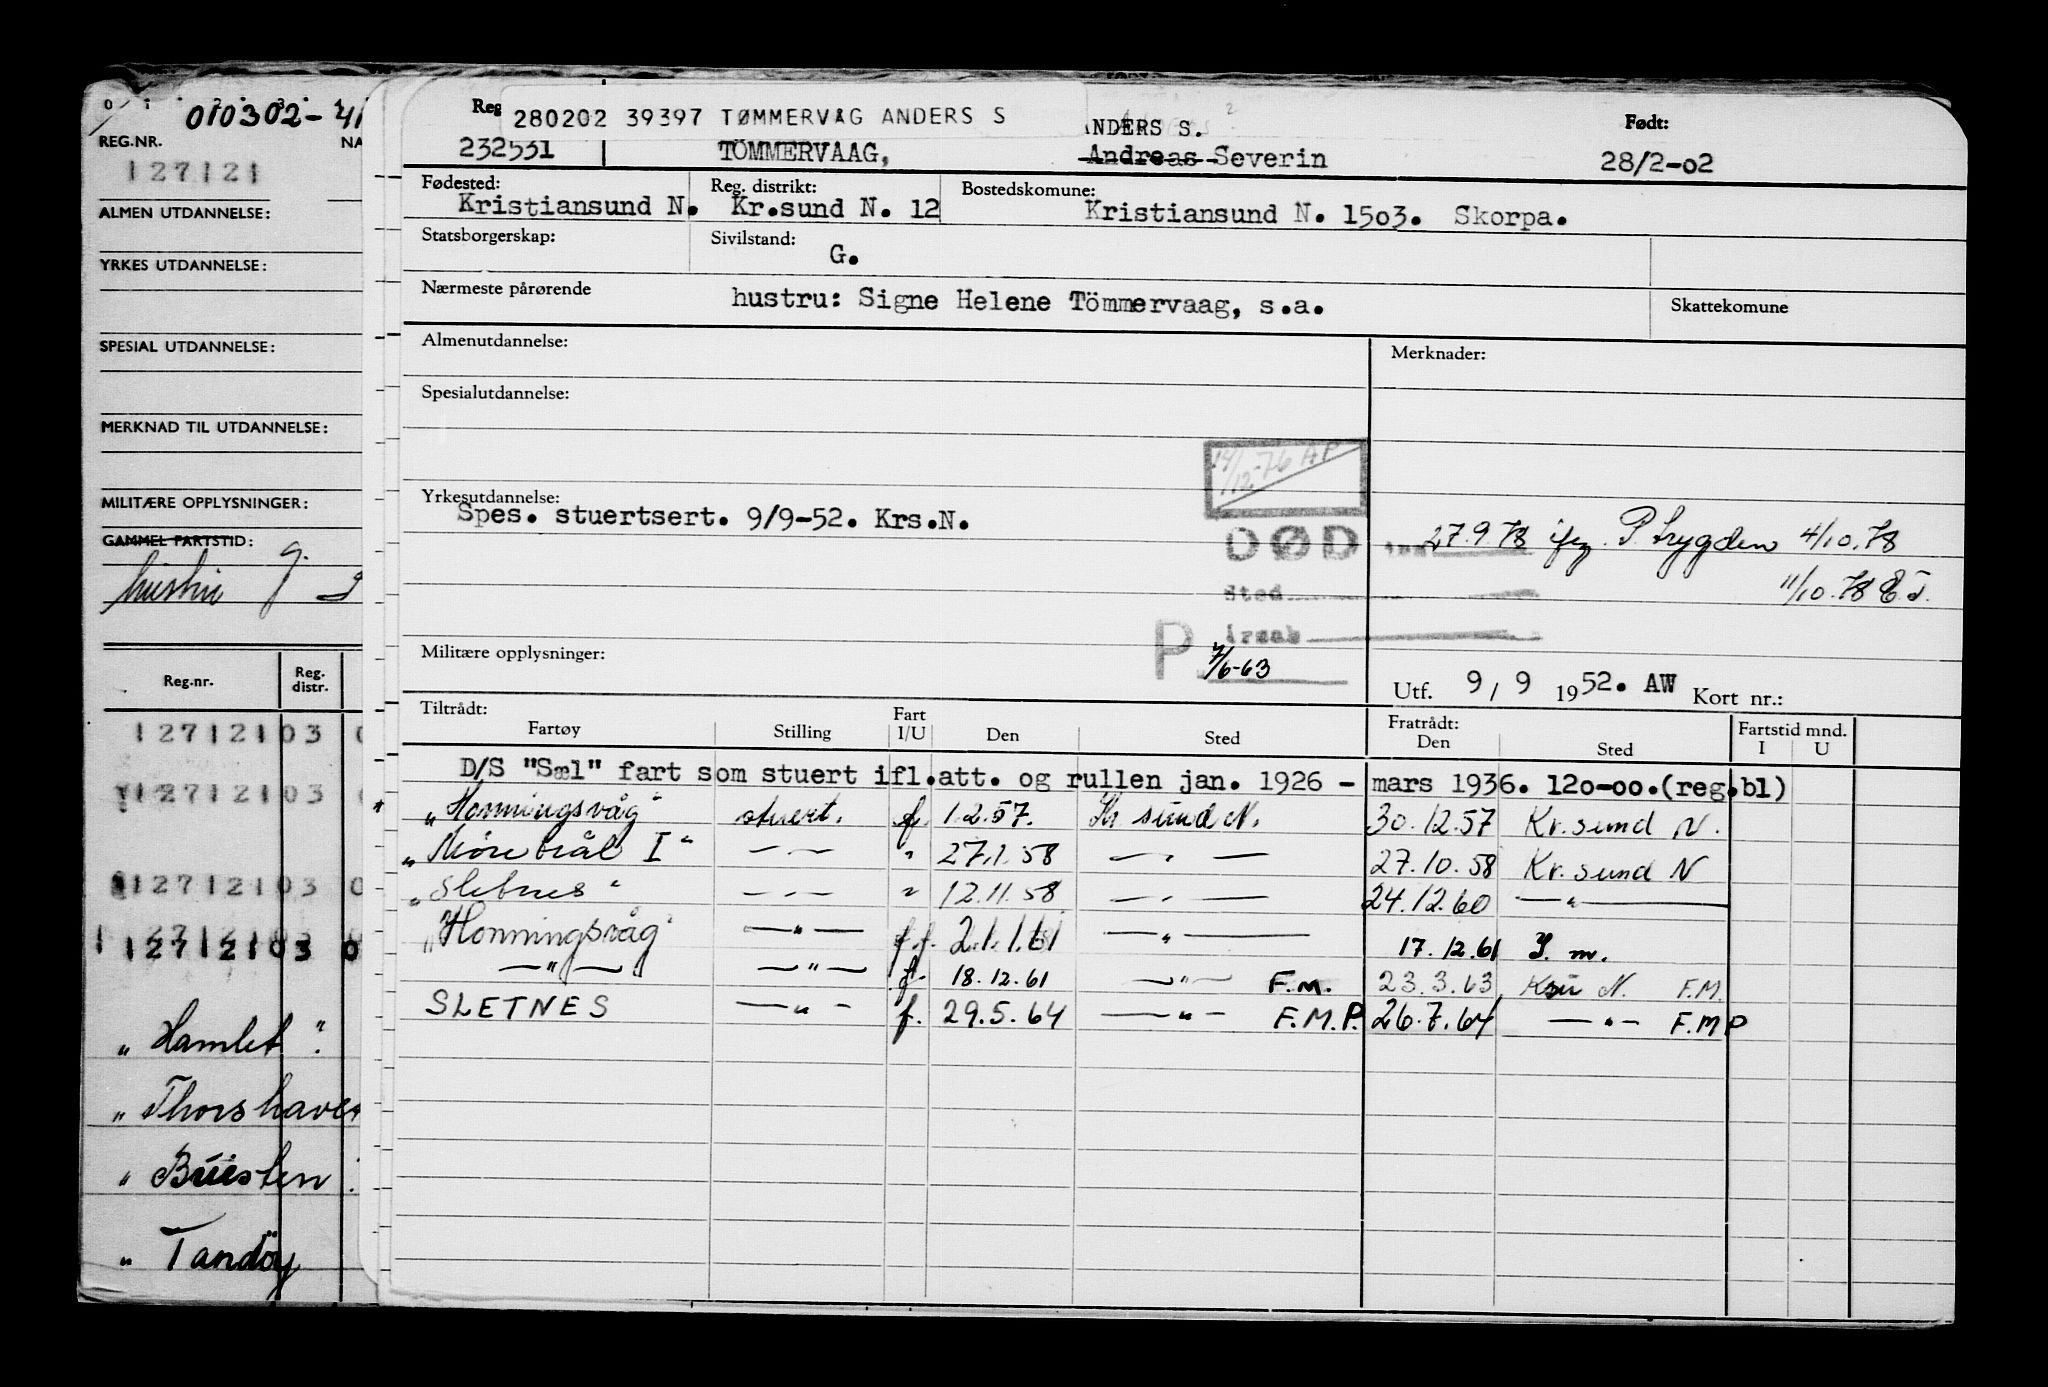 0 1 2 3 4
010302-41
REG.NR. NA
127121
ALMEN UTDANNELSE:
YRKES UTDANNELSE:
SPESIAL UTDANNELSE:
MERKNAD TIL UTDANNELSE:
MILITÆRE OPPLYSNINGER:
GAMMEL FARTSTID:
hustru g.
Reg.nr. Reg. distr.
12712103 0
12712103 0
12712103 0
12712103 0
„ Hamlet "
„ Thorshaven
„ Buesten
„ Tandöy
Reg
280202 39397 TØMMERVÅG ANDERS S
ANDERS S.
Født:
232531 TÖMMERVAAG, Andreas Severin 28/2-02
Fødested: Reg. distrikt: Bostedskomune:
Kristiansund N. Kr.sund N. 12 Kristiansund N. 1503. Skorpa.
Statsborgerskap: Sivilstand:
G.
Nærmeste pårørende hustru: Signe Helene Tömmervaag, s.a. Skattekomune
Almenutdannelse: Merknader:
Spesialutdannelse:
14/12-76 AP
Yrkesutdannelse:
Spes. stuertsert. 9/9-52. Krs.N.
DØD 27.9.78 ifg. P Trygden 4/10.78
Sted
11/10.78 E.T.
P årsak
Militære opplysninger: 7/6-63
Utf. 9 / 9 1952. AW Kort nr.:
Tiltrådt: Fart Fratrådt: Fartstid mnd.
Fartøy Stilling I/U Den Sted Den Sted I U
D/S "Sæl" fart som stuert ifl.att. og rullen jan. 1926 - mars 1936. 120-00.(reg.bl)
„Honningsvåg" stuert. f. 1.2.57. Kr sund N. 30.12.57 Kr. sund N.
„ Möretrål I " — " — " 27.1.58 — " — 27.10.58 Kr. sund N
„ Sletnes " — " — " 12.11.58 — " — 24.12.60 — " —
„Honningsvåg" — " — f.f. 2.1.61 — " — 17.12.61 S. m.
— " — — " — f. 18.12.61 — " — F.M. 23.3.63 Ksu N. F.M.
SLETNES — " — f. 29.5.64 — " — F.M.P. 26.7.64 — " — F.M P